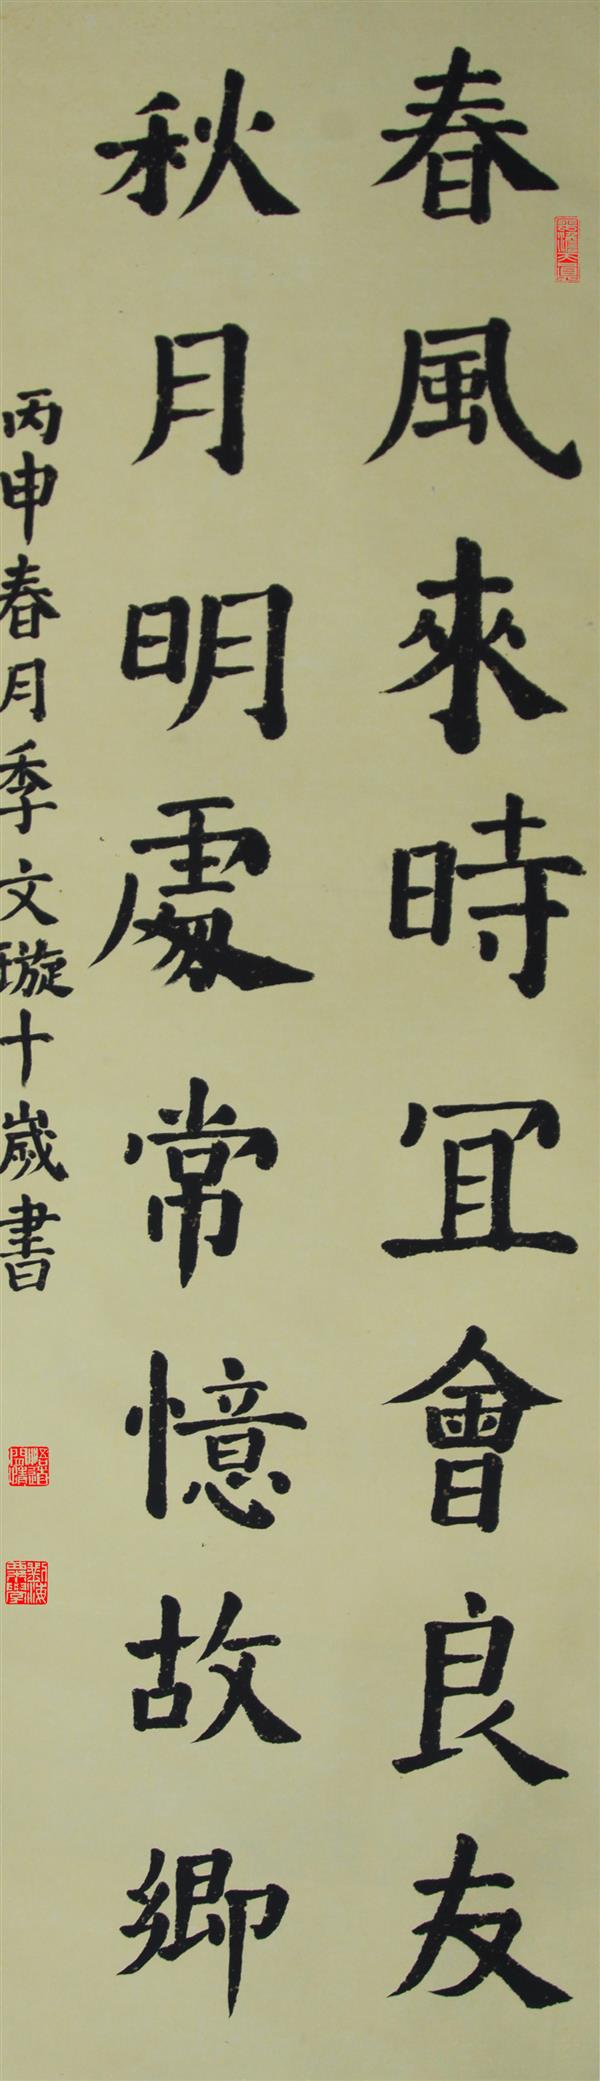 春風來時冝會良友
秋月明處常憶故卿
丙申春月季文璇十歲書